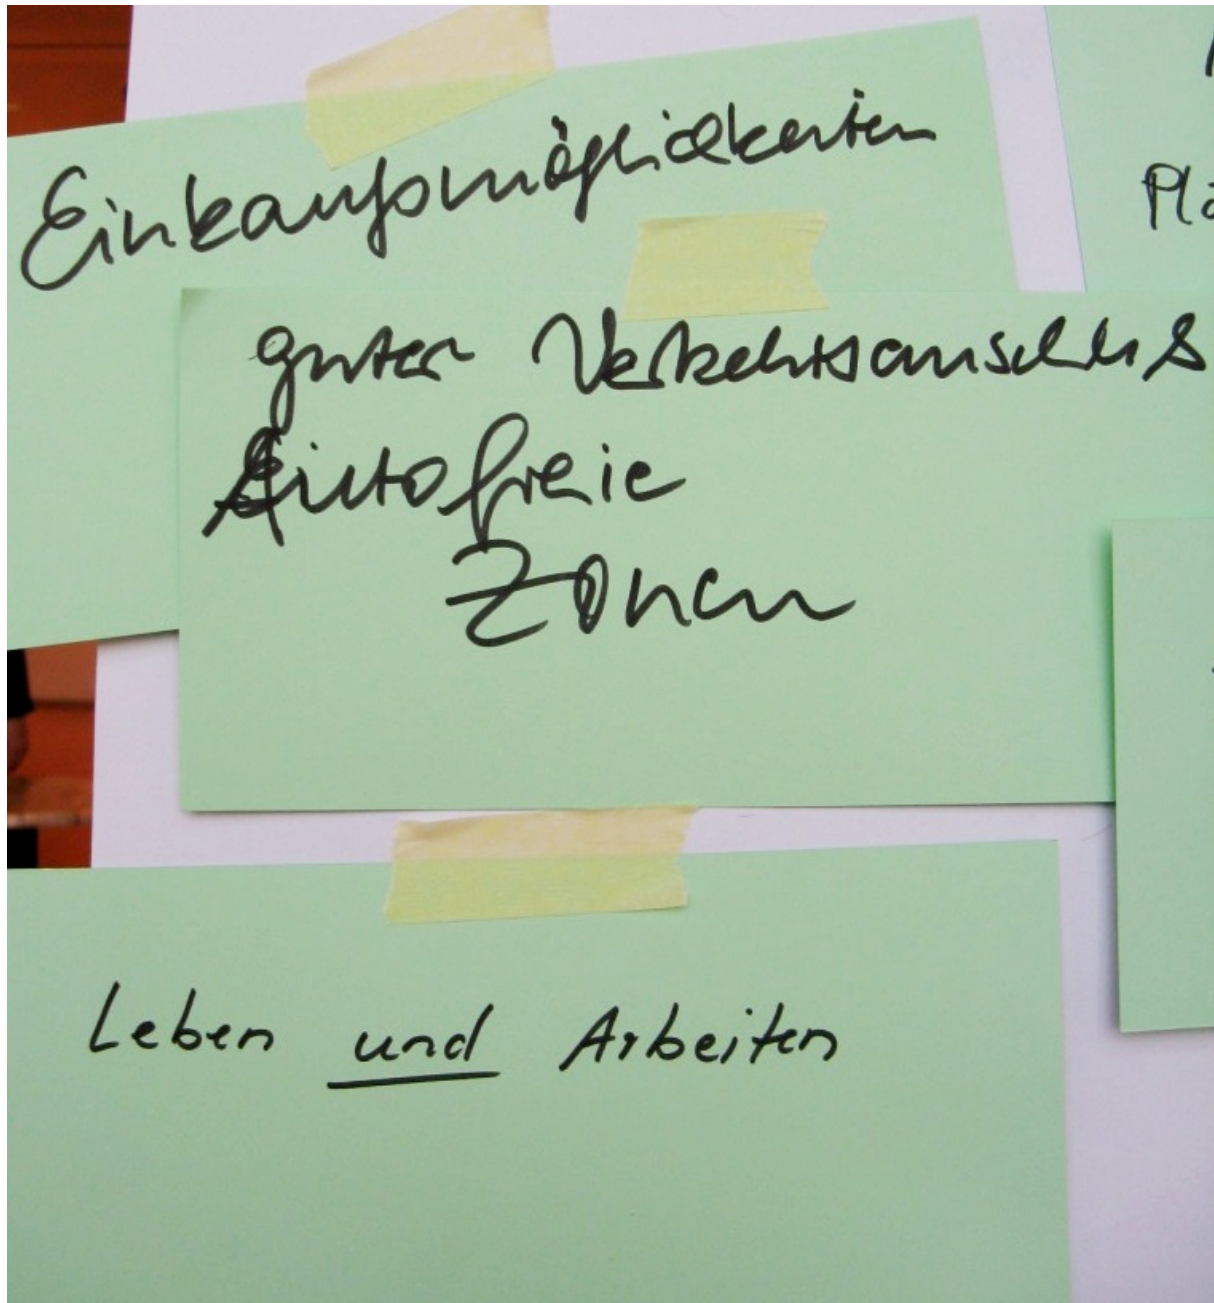 Einkaufsmöglichkeiten
Plä
guter Verkehrsanschluß
Autofreie
Zonen
Leben und Arbeiten